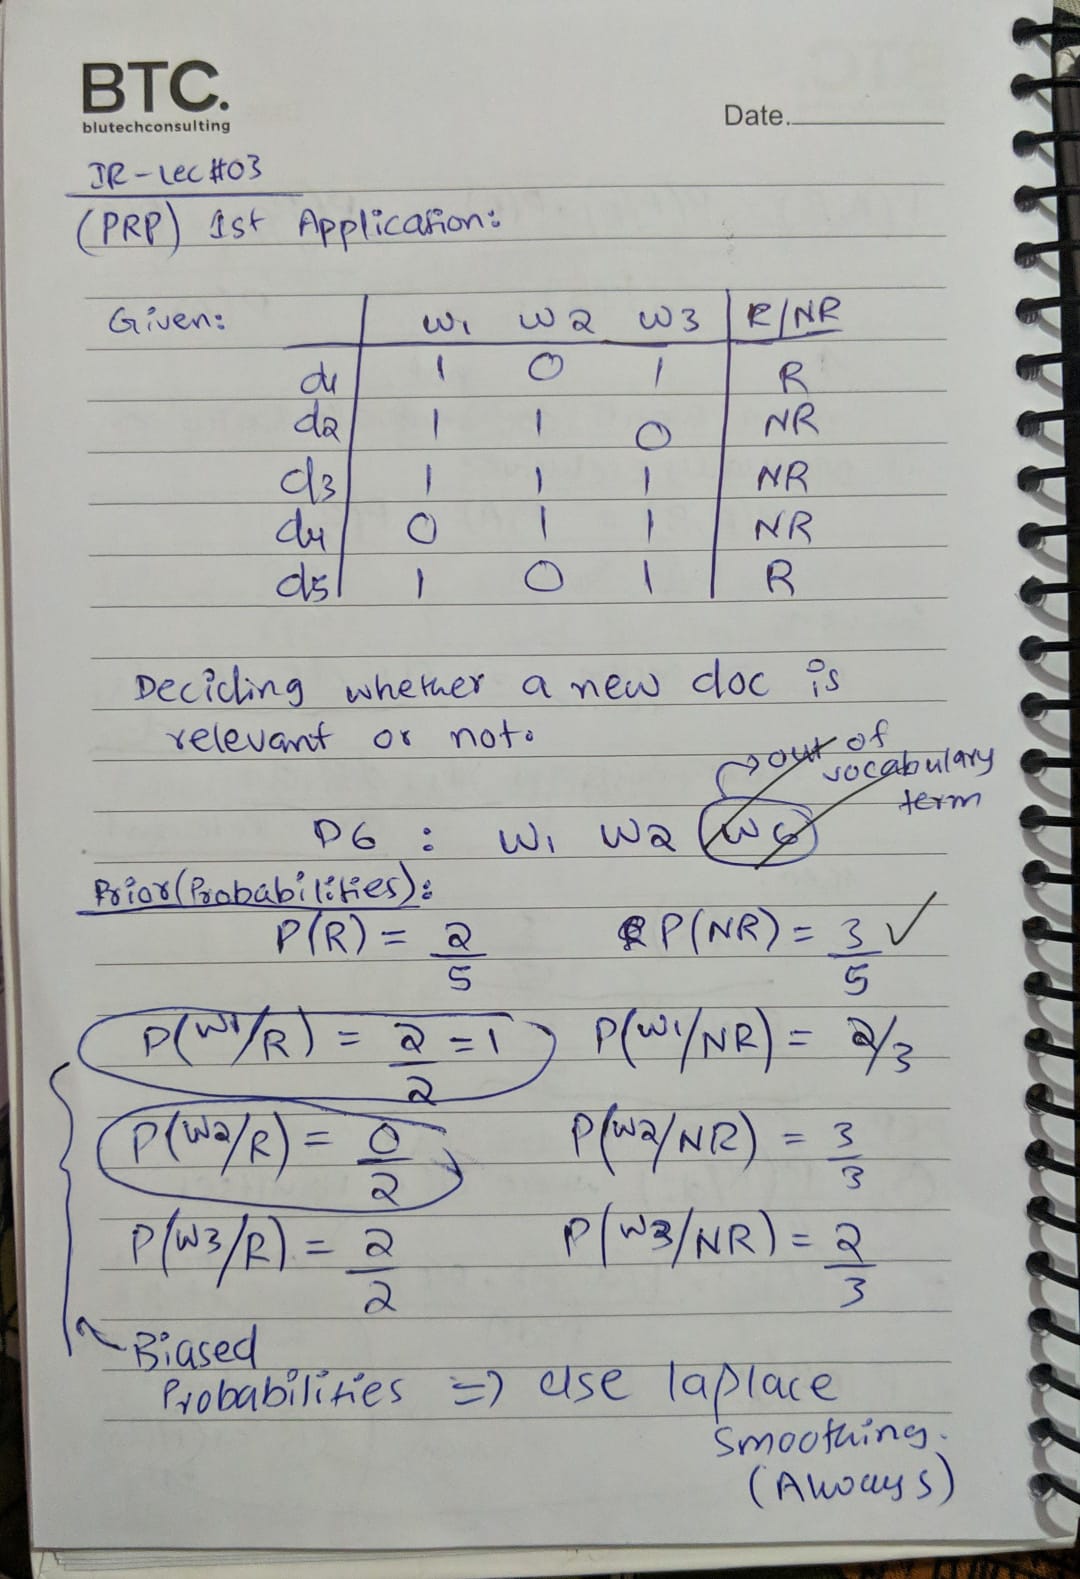 BTC.
blutechconsulting
Date.
IR-Lec#03
(PRP) 1st Application:
Given: W1 W2 W3 R/NR
d1 1 0 1 R
d2 1 1 0 NR
d3 1 1 1 NR
d4 0 1 1 NR
d5 1 0 1 R
Deciding whether a new doc is
relevant or not.
→ out of
vocabulary
term
D6 : W1 W2 W6
Prior(Probabilities):
P(R) = 2/5 P(NR) = 3/5 ✓
P(W1/R) = 2/2 = 1 P(W1/NR) = 2/3
P(W2/R) = 0/2 P(W2/NR) = 3/3
P(W3/R) = 2/2 P(W3/NR) = 2/3
Biased
Probabilities => Use laplace
Smoothing.
(Always)